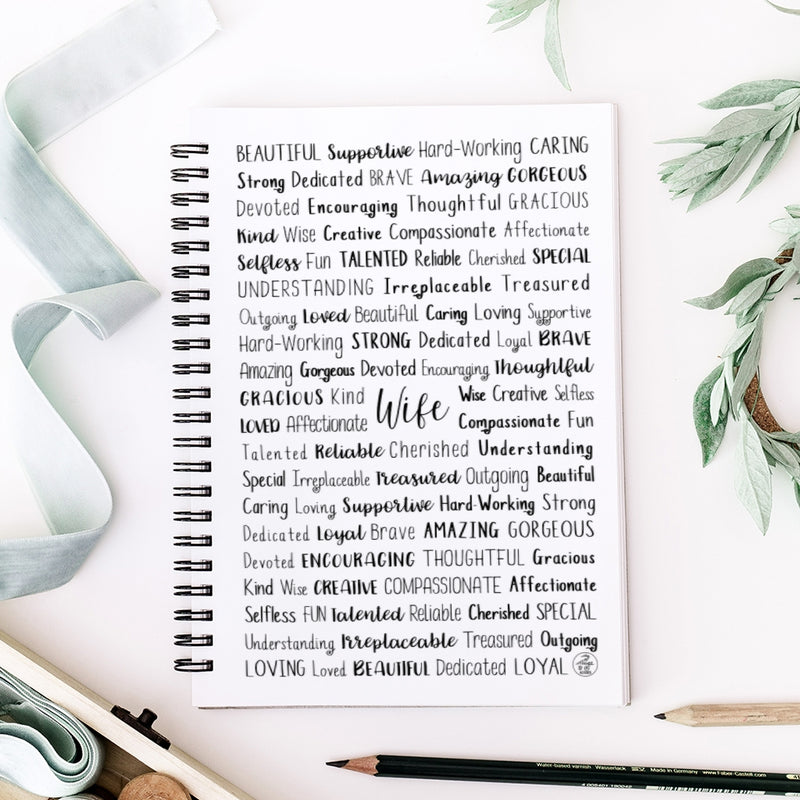 BEAUTIFUL Supportive Hard-Working CARING
Strong Dedicated BRAVE Amazing GORGEOUS
Devoted Encouraging Thoughtful GRACIOUS
Kind Wise Creative Compassionate Affectionate
Selfless Fun TALENTED Reliable Cherished SPECIAL
UNDERSTANDING Irreplaceable Treasured
Outgoing Loved Beautiful Caring Loving Supportive
Hard-Working STRONG Dedicated Loyal BRAVE
Amazing Gorgeous Devoted Encouraging Thoughtful
GRACIOUS Kind Wise Creative Selfless
Wife
LOVED Affectionate Compassionate Fun
Talented Reliable Cherished Understanding
Special Irreplaceable Treasured Outgoing Beautiful
Caring Loving Supportive Hard-Working Strong
Dedicated Loyal Brave AMAZING GORGEOUS
Devoted ENCOURAGING THOUGHTFUL Gracious
Kind Wise CREATIVE COMPASSIONATE Affectionate
Selfless FUN Talented Reliable Cherished SPECIAL
Understanding Irreplaceable Treasured Outgoing
LOVING Loved BEAUTIFUL Dedicated LOYAL
Water-based varnish Wasserlack Made in Germany www.Faber-Castell.com